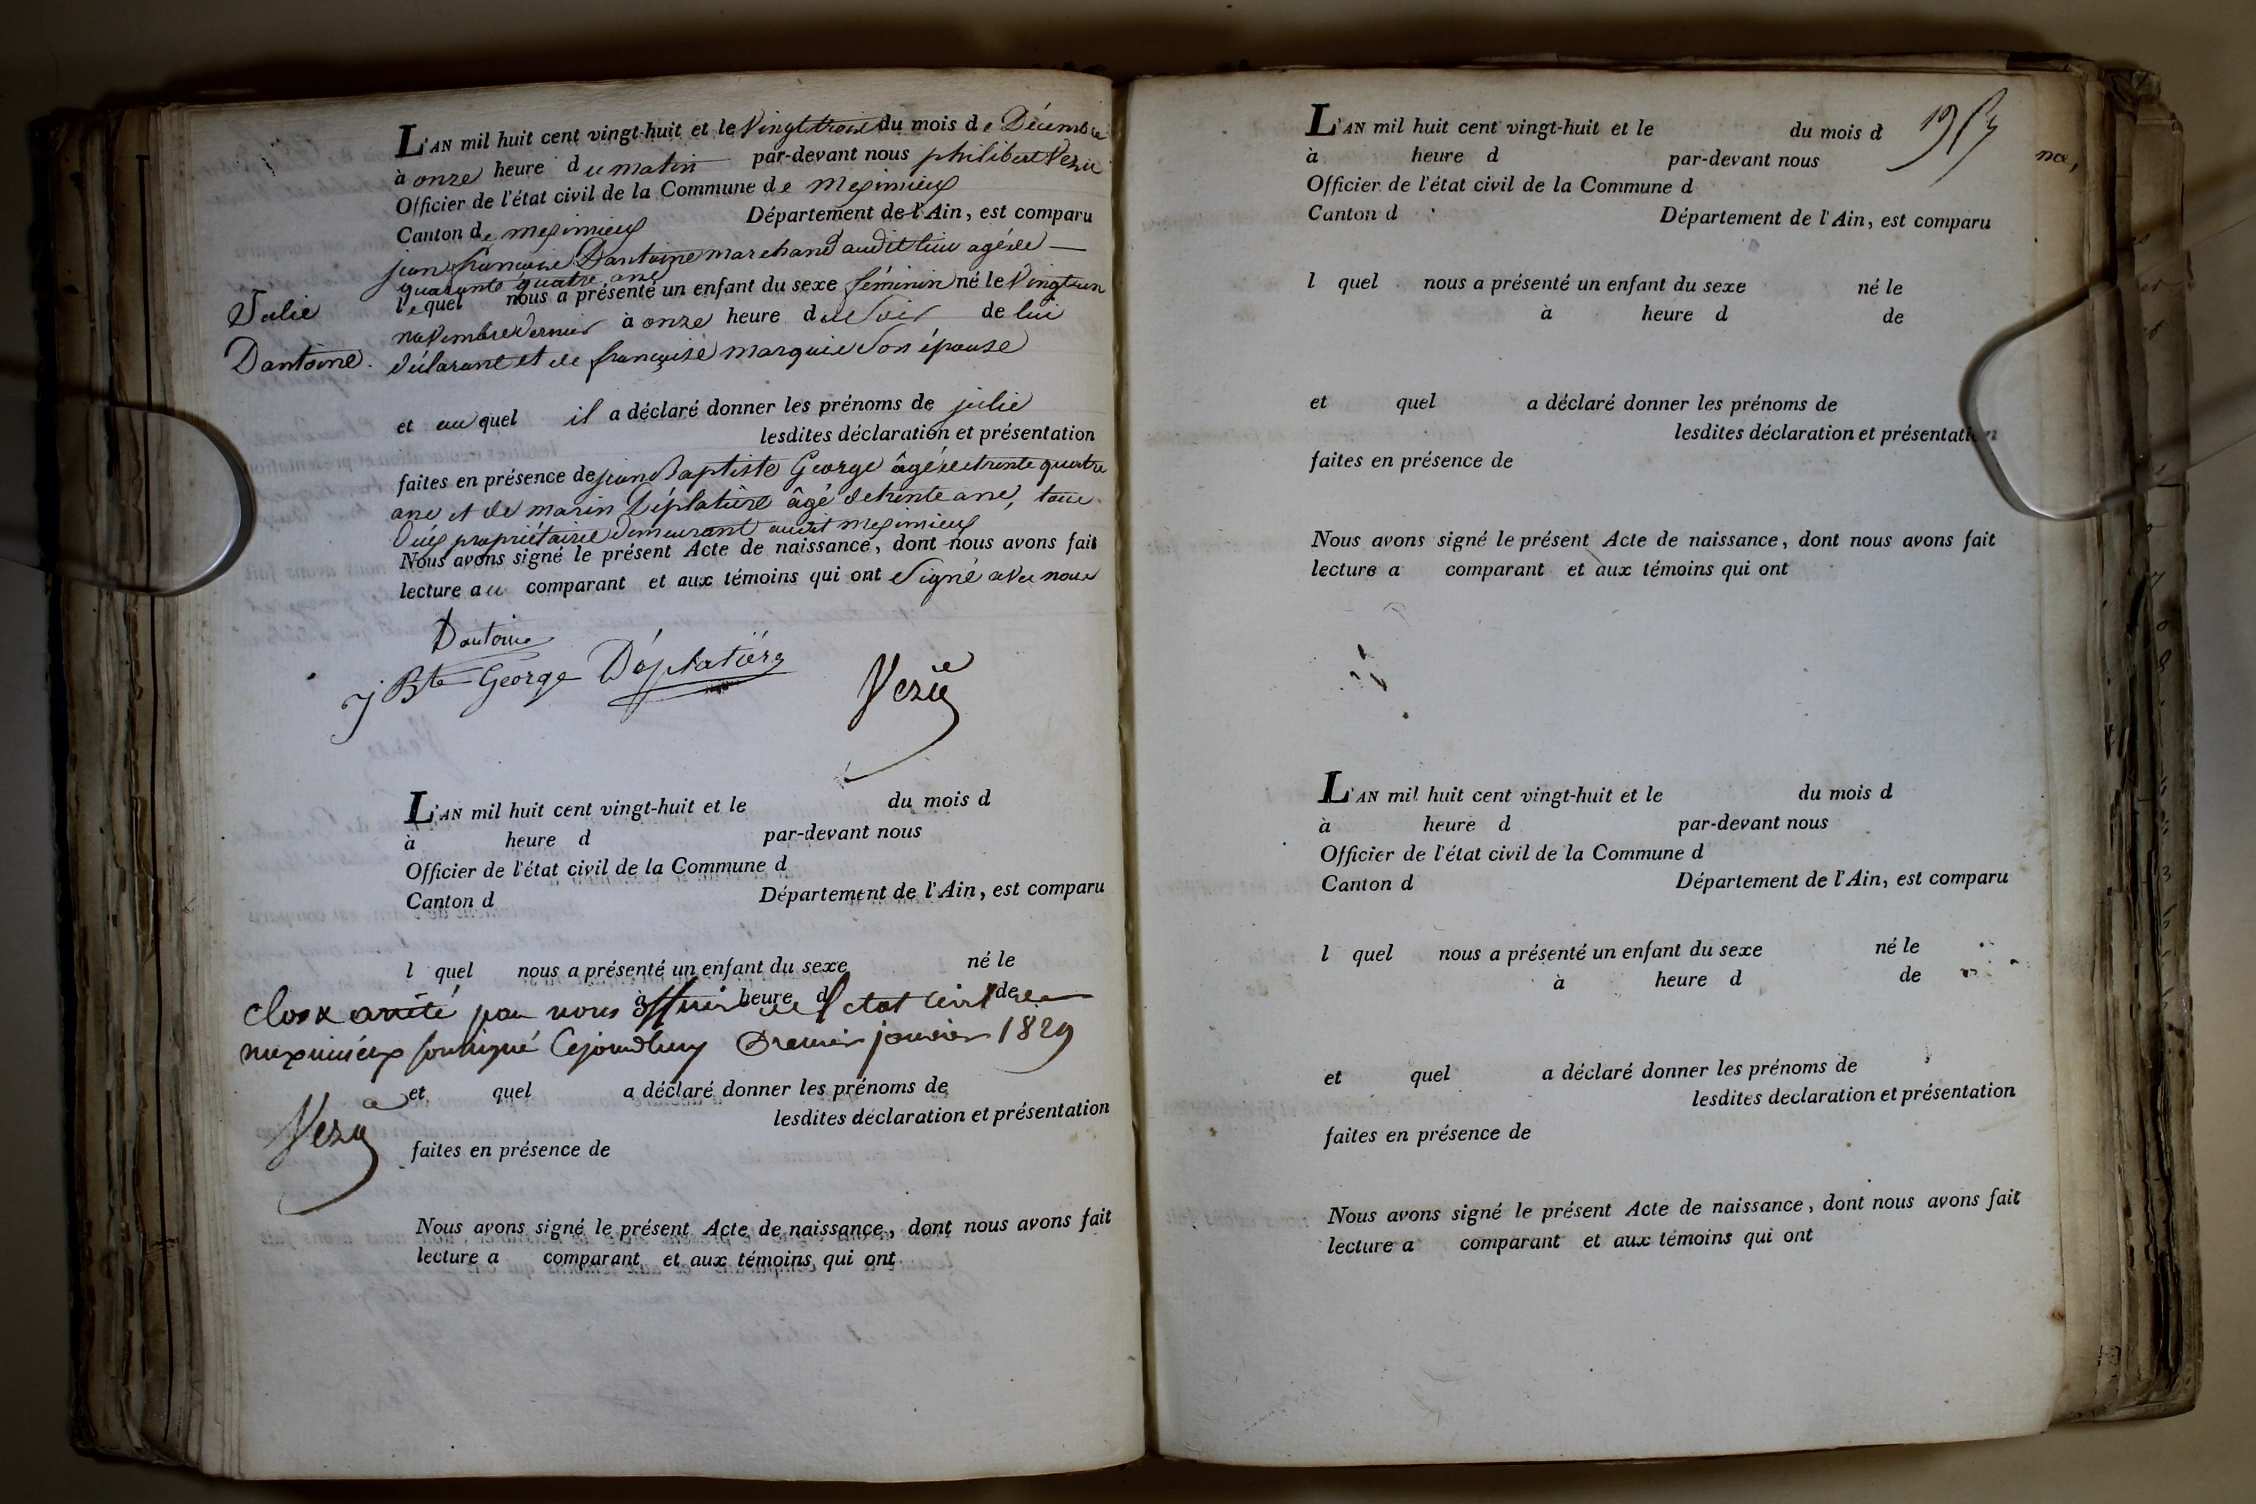 L'AN mil huit cent vingt-huit et le Vingt trois du mois de Décembre
à onze heure du matin par-devant nous philibert Vezu
Officier de l'état civil de la Commune de meximieux
Canton de meximieux Département de l'Ain, est comparu
jean françois Dantoine marchand audit lieu agé de
quarante quatre ans
Julie
Dantoine.
lequel nous a présenté un enfant du sexe féminin né le Vingt un
novembre dernier à onze heure du Soir de lui
déclarant et de françoise marquis Son épouse
et auquel il a déclaré donner les prénoms de julie
lesdites déclaration et présentation
faites en présence de jean Baptiste George âgé de trente quatre
ans et de marin Déplatière âgé de trente ans, tous
deux propriétaires demeurant audit meximieux
Nous avons signé le présent Acte de naissance, dont nous avons fait
lecture au comparant et aux témoins qui ont Signé avec nous
Dantoine
j Bte George Déplatière
Vezu
L'AN mil huit cent vingt-huit et le du mois d
à heure d par-devant nous
Officier de l'état civil de la Commune d
Canton d Département de l'Ain, est comparu
l quel nous a présenté un enfant du sexe né le
à heure d de
Clos & arrêté par nous officier de l'état civil de
meximieux soussigné Cejourdhuy Premier janvier 1829
et quel a déclaré donner les prénoms de
lesdites déclaration et présentation
Vezu
faites en présence de
Nous avons signé le présent Acte de naissance, dont nous avons fait
lecture a comparant et aux témoins qui ont
L'AN mil huit cent vingt-huit et le du mois d
à heure d par-devant nous
Officier de l'état civil de la Commune d
Canton d Département de l'Ain, est comparu
l quel nous a présenté un enfant du sexe né le
à heure d de
et quel a déclaré donner les prénoms de
lesdites déclaration et présentation
faites en présence de
Nous avons signé le présent Acte de naissance, dont nous avons fait
lecture a comparant et aux témoins qui ont
L'AN mil huit cent vingt-huit et le du mois d
à heure d par-devant nous
Officier de l'état civil de la Commune d
Canton d Département de l'Ain, est comparu
l quel nous a présenté un enfant du sexe né le
à heure d de
et quel a déclaré donner les prénoms de
lesdites declaration et présentation
faites en présence de
Nous avons signé le présent Acte de naissance, dont nous avons fait
lecture a comparant et aux témoins qui ont